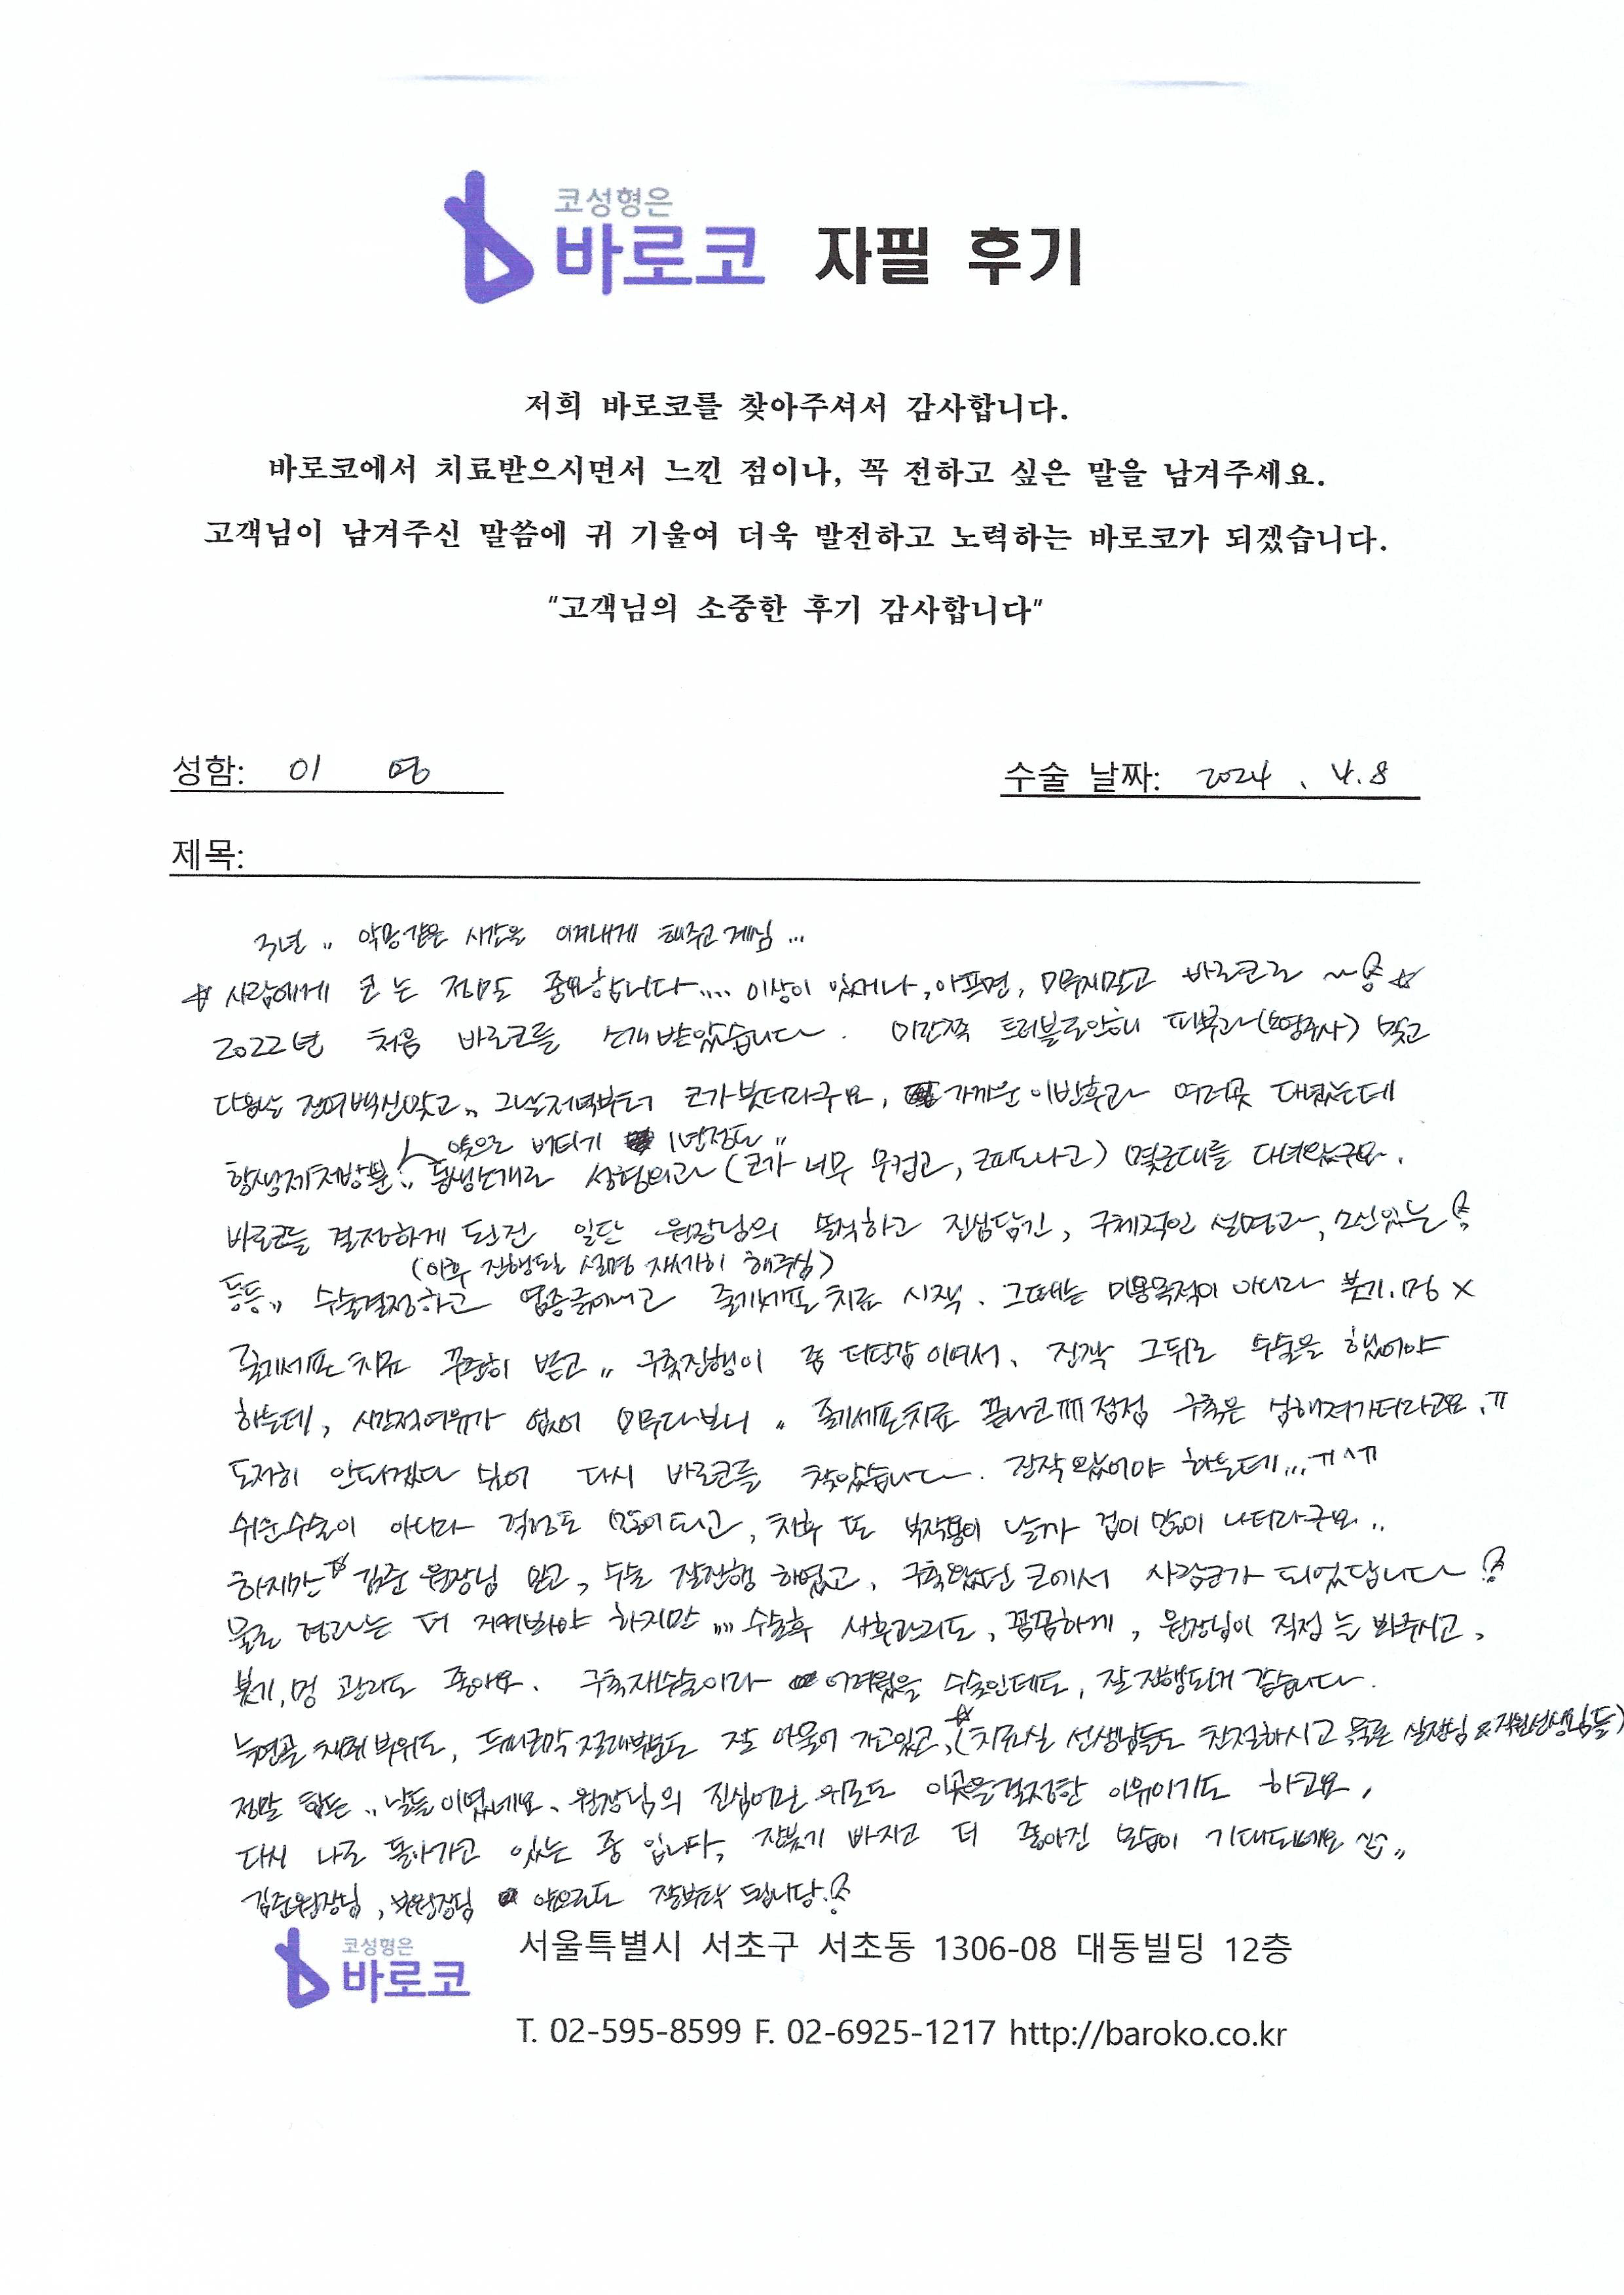 코성형은
바로코 자필 후기
저희 바로코를 찾아주셔서 감사합니다.
바로코에서 치료받으시면서 느낀 점이나, 꼭 전하고 싶은 말을 남겨주세요.
고객님이 남겨주신 말씀에 귀 기울여 더욱 발전하고 노력하는 바로코가 되겠습니다.
"고객님의 소중한 후기 감사합니다"
성함: 이 영 수술 날짜: 2024. 4.8
제목:
3년 .. 악몽같은 시간을 이겨내게 해주고 계심 ...
☆ 사람에게 코는 정말도 중요합니다.... 이상이 있거나, 아프면, 미루지말고 바로코로 ~~ ☆
2022년 처음 바로코를 소개받았습니다. 미간쪽 트러블로인해 피부과(염증주사) 맞고
다음날 잔여백신맞고.. 그날저녁부터 코가 붓더라구요, 가까운 이빈후과 여러곳 다녔는데
약으로 버티기 1년정도 ..
항생제처방뿐.. 동생소개로 성형외과 (코가 너무 무겁고, 코피도나고) 몇군데를 다녀왔구요.
바로코를 결정하게 된건 일단 원장님의 솔직하고 진심담긴, 구체적인 설명과,
(이후 진행될 설명 자세히 해주심)
등등.. 수술결정하고 염증긁어내고 줄기세포 치료 시작. 그때는 미용목적이 아니라 붓기.멍 x
줄기세포 치료 꾸준히 받고 .. 구축진행이 좀 더딘감이여서. 진작 그뒤로 수술을 했어야
하는데, 시간적여유가 없어 미루다보니 .. 줄기세포치료 끝나고 점점 구축은 심해져가더라고요.ㅠ
도저히 안되겠다 싶어 다시 바로코를 찾았습니다. 진작 왔어야 하는데...ㅠ^ㅠ
쉬운수술이 아니라 걱정도 많이 되고, 차후 또 부작용이 날까 겁이 많이 나더라구요..
하지만☆ 김준 원장님 믿고, 수술 잘진행 하였고, 구축왔던 코에서 사람코가 되었답니다
물론 경과는 더 지켜봐야 하지만 .... 수술후 사후관리도, 꼼꼼하게, 원장님이 직접 늘 봐주시고,
붓기,멍 관리도 좋아요. 구축재수술이라 어려웠을 수술인데도, 잘 진행된거 같습니다.
늑연골 채취부위도, 두피근막 절개부분도 잘 아물어 가고있고,☆(치료실 선생님들도 친절하시고 물론 실장님 & 직원선생님들)
정말 힘든 .. 날들이였네요. 원장님의 진심어린 위로도 이곳을결정한 이유이기도 하고요,
다시 나로 돌아가고 있는 중 입니다, 잔붓기 빠지고 더 좋아진 모습이 기대되네요 ^^ ..
김준원장님, 부원장님 앞으로도 잘부탁 드립니당.
코성형은
바로코
서울특별시 서초구 서초동 1306-08 대동빌딩 12층
T. 02-595-8599 F. 02-6925-1217 http://baroko.co.kr